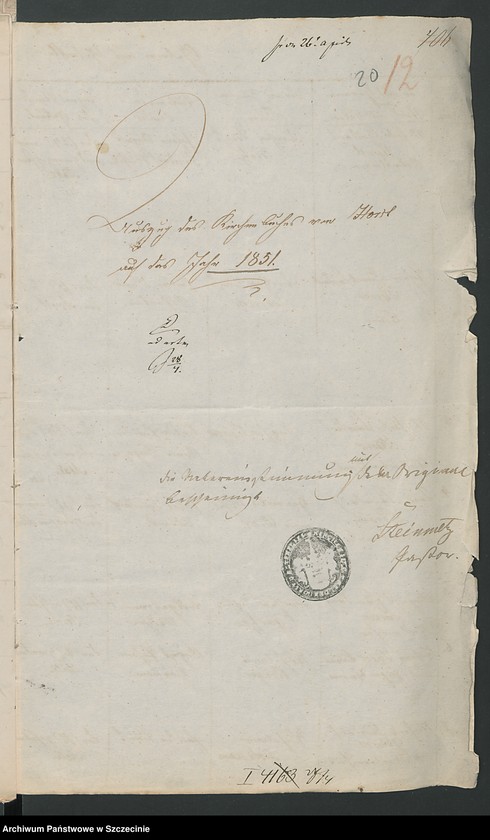 20 12
Auszug des Kirchenbuches von Horst
auf das Jahr 1851.
ad acta
28/4.
die Uebereinstimmung mit dem Original
bescheinigt
Steinmetz
Pastor.
I 4163
Archiwum Państwowe w Szczecinie